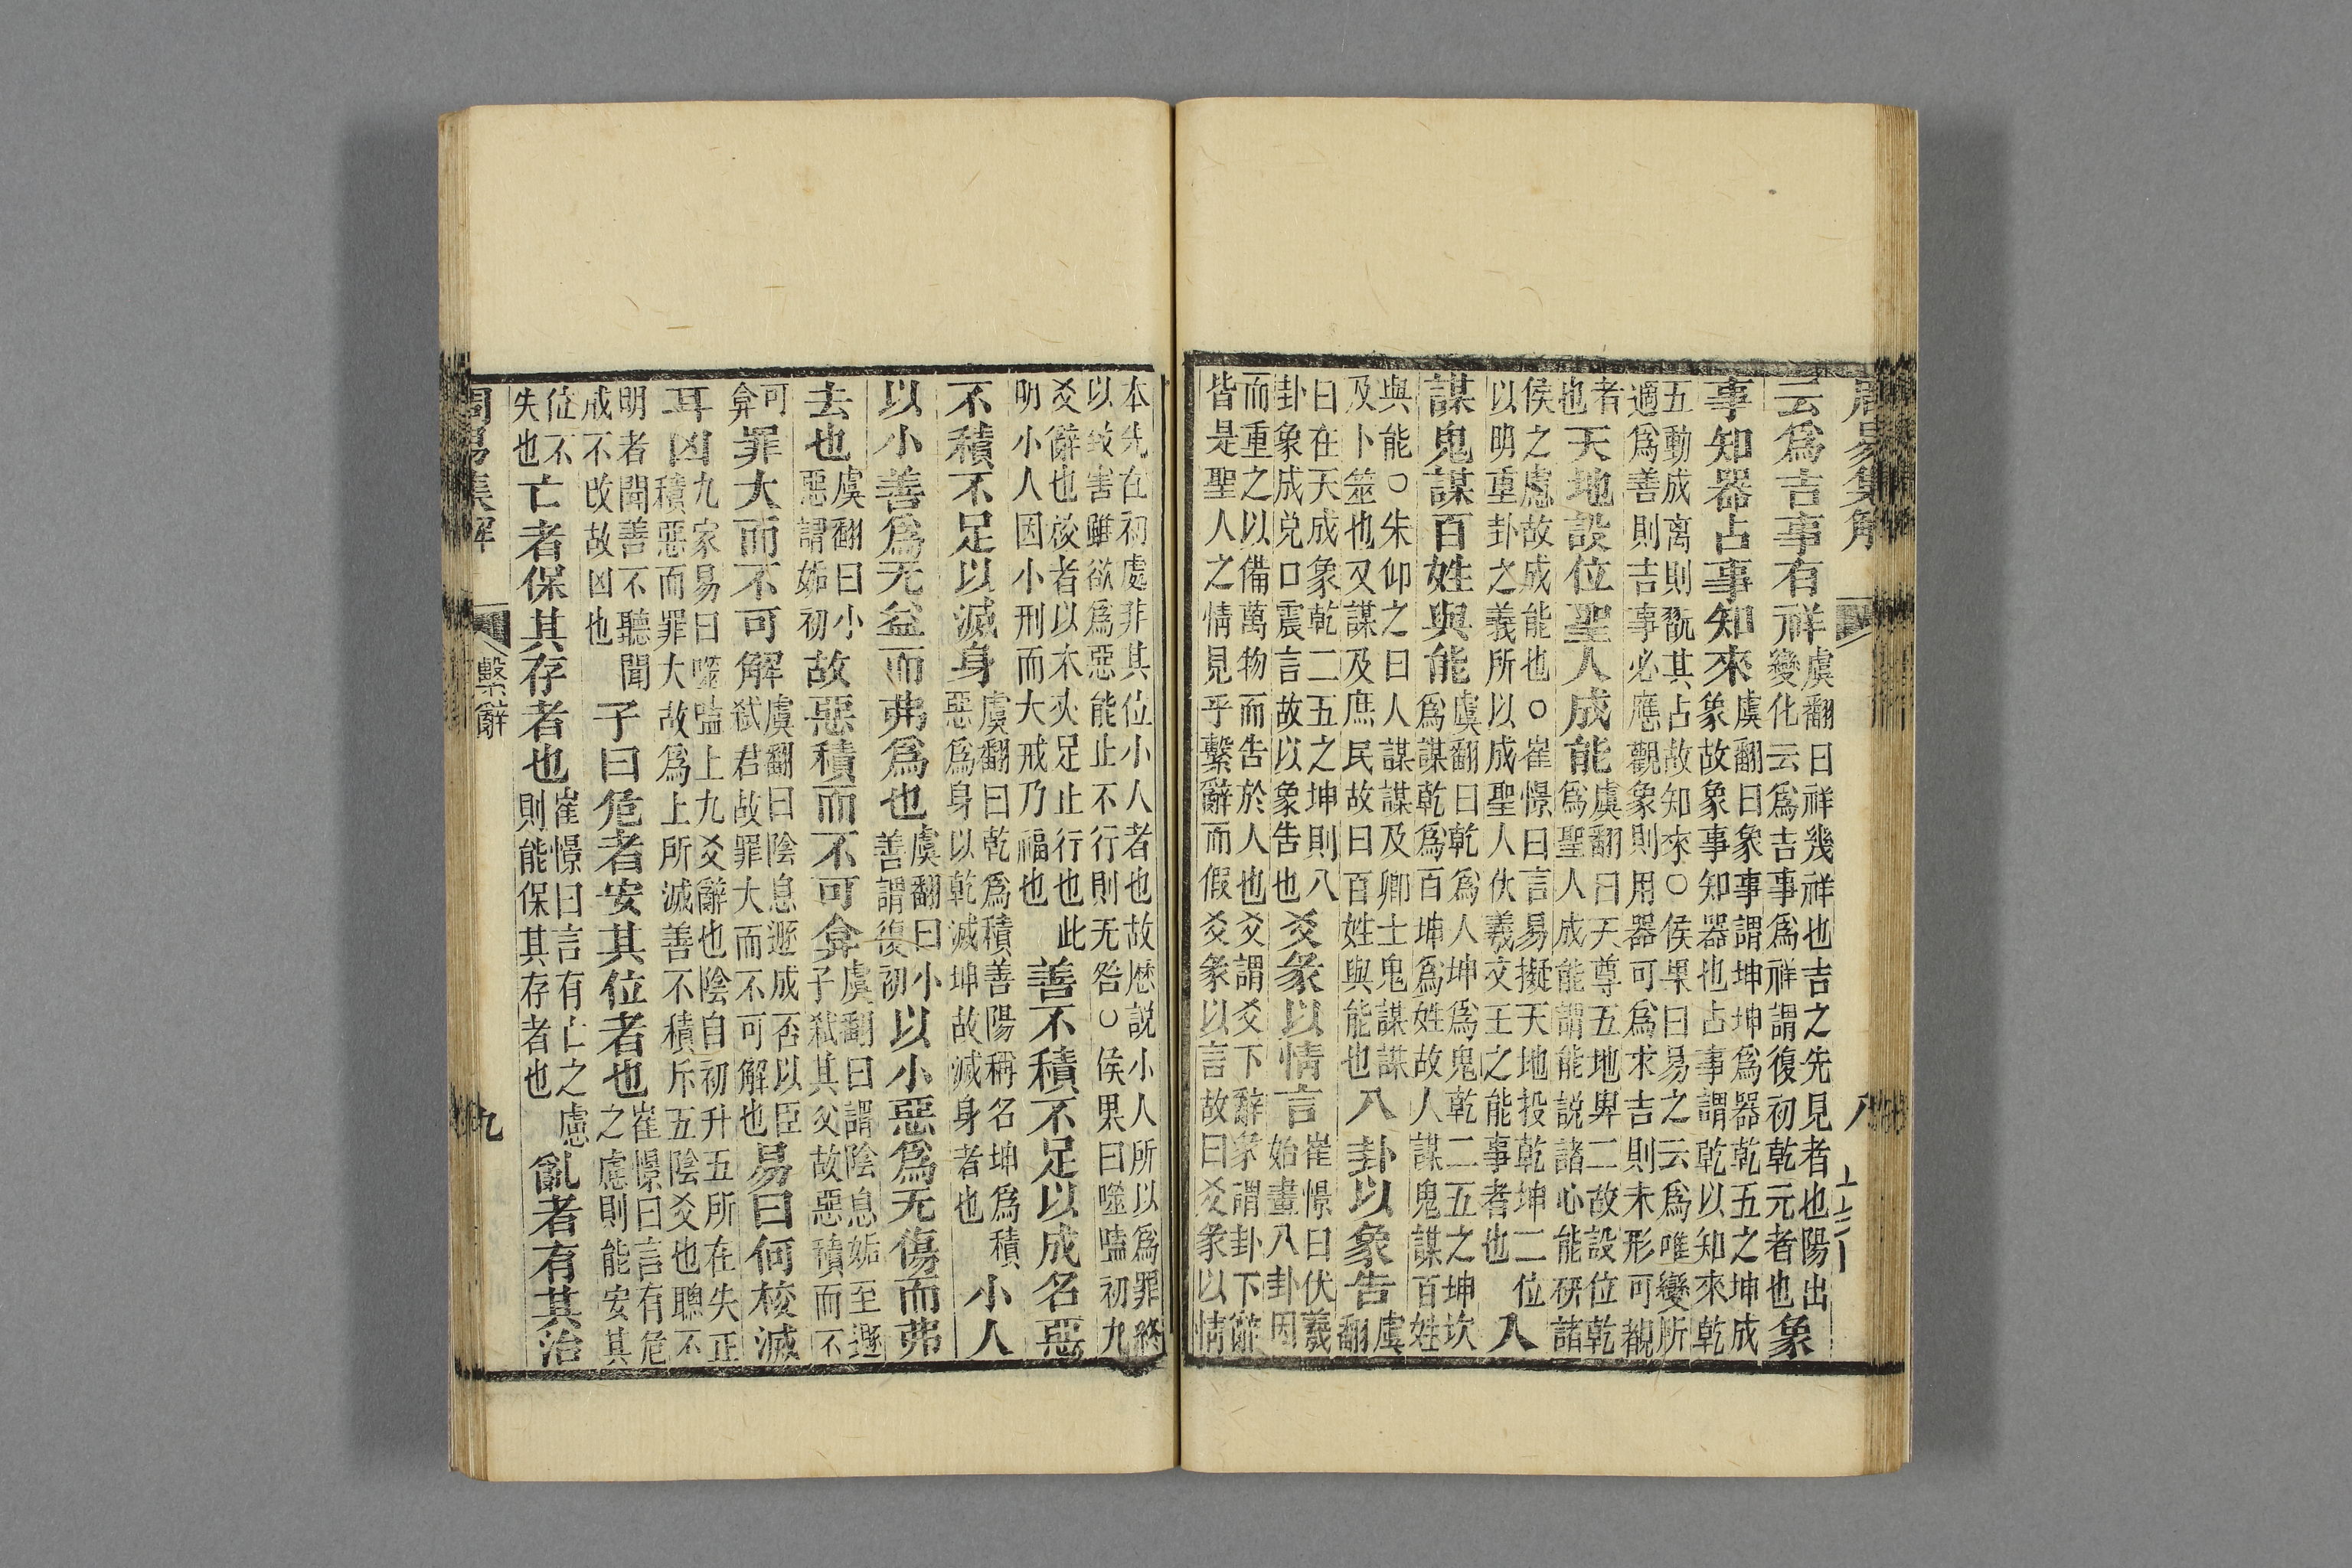 周易集解 八
云爲吉事有祥虞翻曰祥幾祥也吉之先見者也陽出變化云爲吉事爲祥謂復初乾元者也象
事知器占事知來虞翻曰象事謂坤坤爲器乾五之坤成象故象事知器也占事謂乾以知來乾
五動成离則翫其占故知來○侯果曰易之云爲唯變所適爲善則吉事必應觀象則用器可爲求吉則未形可覩
者也天地設位聖人成能虞翻曰天尊五地卑二故設位乾爲聖人成能謂能説諸心能研諸
侯之慮故成能也○崔憬曰言易擬天地投乾坤二位以明重卦之義所以成聖人伏羲文王之能事者也人
謀鬼謀百姓與能虞翻曰乾爲人坤爲鬼乾二五之坤坎爲謀乾爲百坤爲姓故人謀鬼謀百姓
與能○朱仰之曰人謀謀及卿士鬼謀謀及卜筮也又謀及庶民故曰百姓與能也八卦以象告虞翻
曰在天成象乾二五之坤則八卦象成兌口震言故以象告也爻彖以情言崔憬曰伏羲始畫八卦因
而重之以備萬物而告於人也爻謂爻下辭彖謂卦下辭皆是聖人之情見乎繫辭而假爻彖以言故曰爻彖以情
本先在初處非其位小人者也故歴説小人所以爲罪終以致害雖欲爲惡能止不行則无咎○侯果曰噬嗑初九
爻辭也校者以木夾足止行也此明小人因小刑而大戒乃福也善不積不足以成名惡
不積不足以滅身虞翻曰乾爲積善陽稱名坤爲積惡爲身以乾滅坤故滅身者也小人
以小善爲无益而弗爲也虞翻曰小善謂復初以小惡爲无傷而弗
去也虞翻曰小惡謂姤初故惡積而不可弇虞翻曰謂陰息姤至遯子弑其父故惡積而不
可弇罪大而不可解虞翻曰陰息遯成否以臣弑君故罪大而不可解也易曰何校滅
耳凶九家易曰噬嗑上九爻辭也陰自初升五所在失正積惡而罪大故爲上所滅善不積斥五陰爻也聰不
明者聞善不聽聞成不改故凶也子曰危者安其位者也崔憬曰言有危之慮則能安其
位不失也亡者保其存者也崔憬曰言有亡之慮則能保其存者也亂者有其治
周易集解 繫辭 九